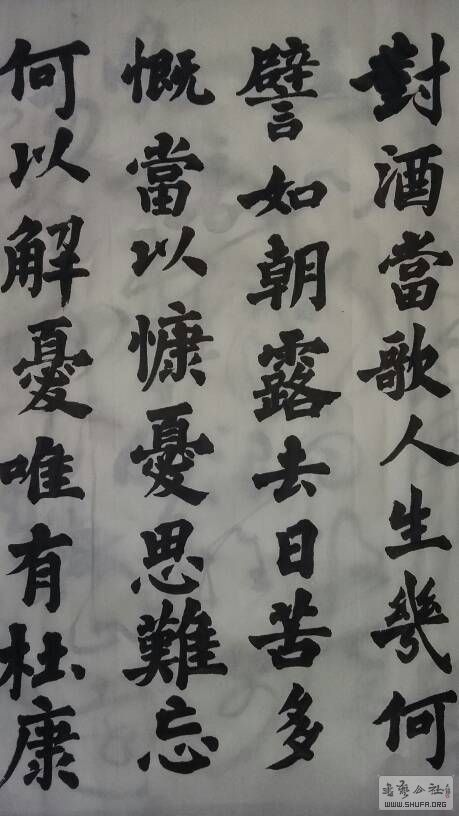 對酒當歌人生幾何
譬如朝露去日苦多
慨當以慷憂思難忘
何以解憂唯有杜康
公社
WWW.SHUFA.ORG